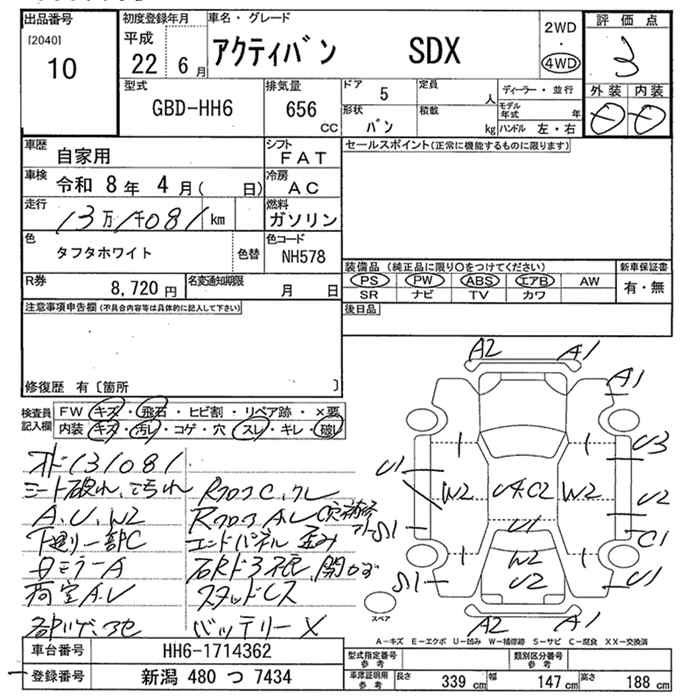 出品番号
[2040]
10
初度登録年月
平成
22 6月
車名・グレード
アクティバン SDX
2WD
・
4WD
評価点
3
外装 内装
型式
GBD-HH6
排気量
656
cc
ドア 5
定員 人
ディーラー・並行
形状 バン
積載 kg
モデル年式 年
ハンドル 左・右
車歴 自家用
シフト FAT
セールスポイント(正常に機能するものに限ります)
車検 令和 8年 4月( 日)
冷房 AC
走行 13万1千081 km
燃料 ガソリン
色 タフタホワイト 色替
色コード NH578
装備品 (純正品に限り○をつけてください)
新車保証書
PS PW ABS エアB AW
有・無
SR ナビ TV カワ
R券 8,720円
名変通知期限 月 日
後日品
注意事項申告欄(不具合内容等は具体的に記入して下さい)
修復歴 有〔箇所 〕
検査員記入欄
FW キズ・飛石・ヒビ割・リペア跡・×要
内装 キズ・汚レ・コゲ・穴・スレ・キレ・破レ
オド131081
シート破れ、汚れ
A、U、W2
下廻り一部C
荷室A.U
エンドパネル歪み
バッテリーX
A2 A1
A1
U3
U1
W2 U4.C2 W2
U2
S1
U1
C1
W2
U2
S1
U1
A2 A1
スペア
A－キズ E－エクボ U－凹み W－補修跡 S－サビ C－腐食 XX－交換済
車台番号 HH6-1714362
登録番号 新潟 480 つ 7434
型式指定番号 参考
類別区分番号 参考
車庫証明用 参考
長さ 339 cm
幅 147 cm
高さ 188 cm